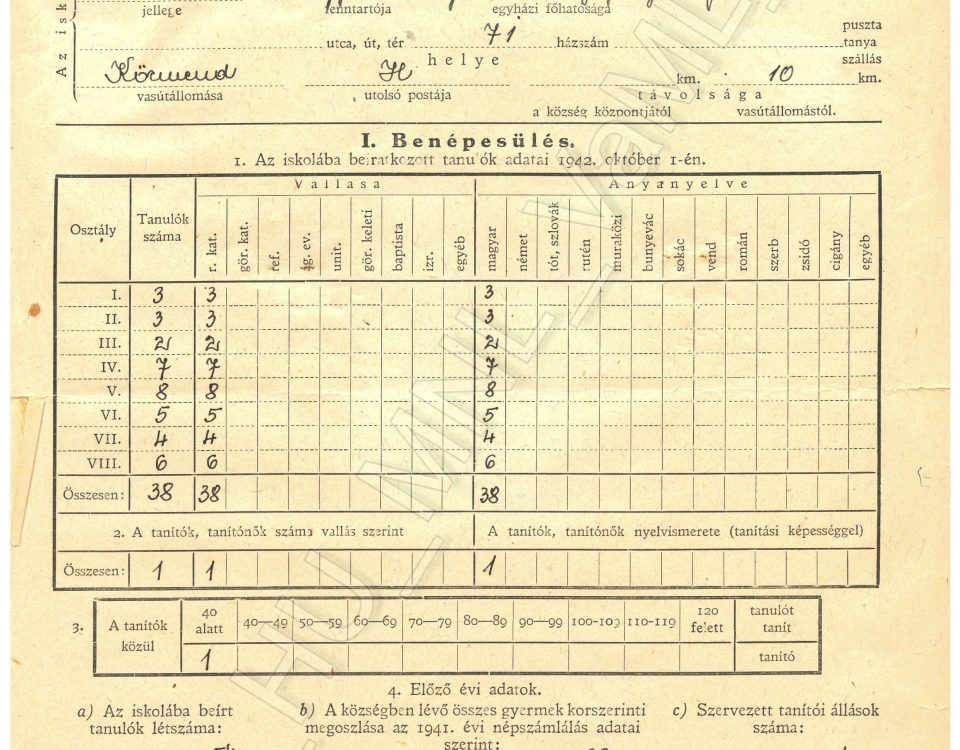 jellege fenntartója egyházi főhatósága
Az isk
utca, út, tér 71 házszám puszta
tanya
szállás
helye
Körmend H km. 10 km.
vasútállomása utolsó postája távolsága
a község központjától vasútállomástól.
I. Benépesülés.
1. Az iskolába beiratkozott tanulók adatai 1942. október 1-én.
Osztály Tanulók száma Vallása Anyanyelve
r. kat. gör. kat. ref. ág. ev. unit. gör. keleti baptista izr. egyéb magyar német tót, szlovák rutén muraközi bunyevác sokác vend román szerb zsidó cigány egyéb
I. 3 3 3
II. 3 3 3
III. 2 2 2
IV. 7 7 7
V. 8 8 8
VI. 5 5 5
VII. 4 4 4
VIII. 6 6 6
Összesen: 38 38 38
2. A tanítók, tanítónők száma vallás szerint A tanítók, tanítónők nyelvismerete (tanítási képességgel)
Összesen: 1 1 1
3. A tanítók közül 40 alatt 40—49 50—59 60—69 70—79 80—89 90—99 100-109 110-119 120 felett tanulót tanít
1 tanító
4. Előző évi adatok.
a) Az iskolába beírt b) A községben lévő összes gyermek korszerinti c) Szervezett tanítói állások
tanulók létszáma: megoszlása az 1941. évi népszámlálás adatai száma:
szerint:
HU_MNL_VaML